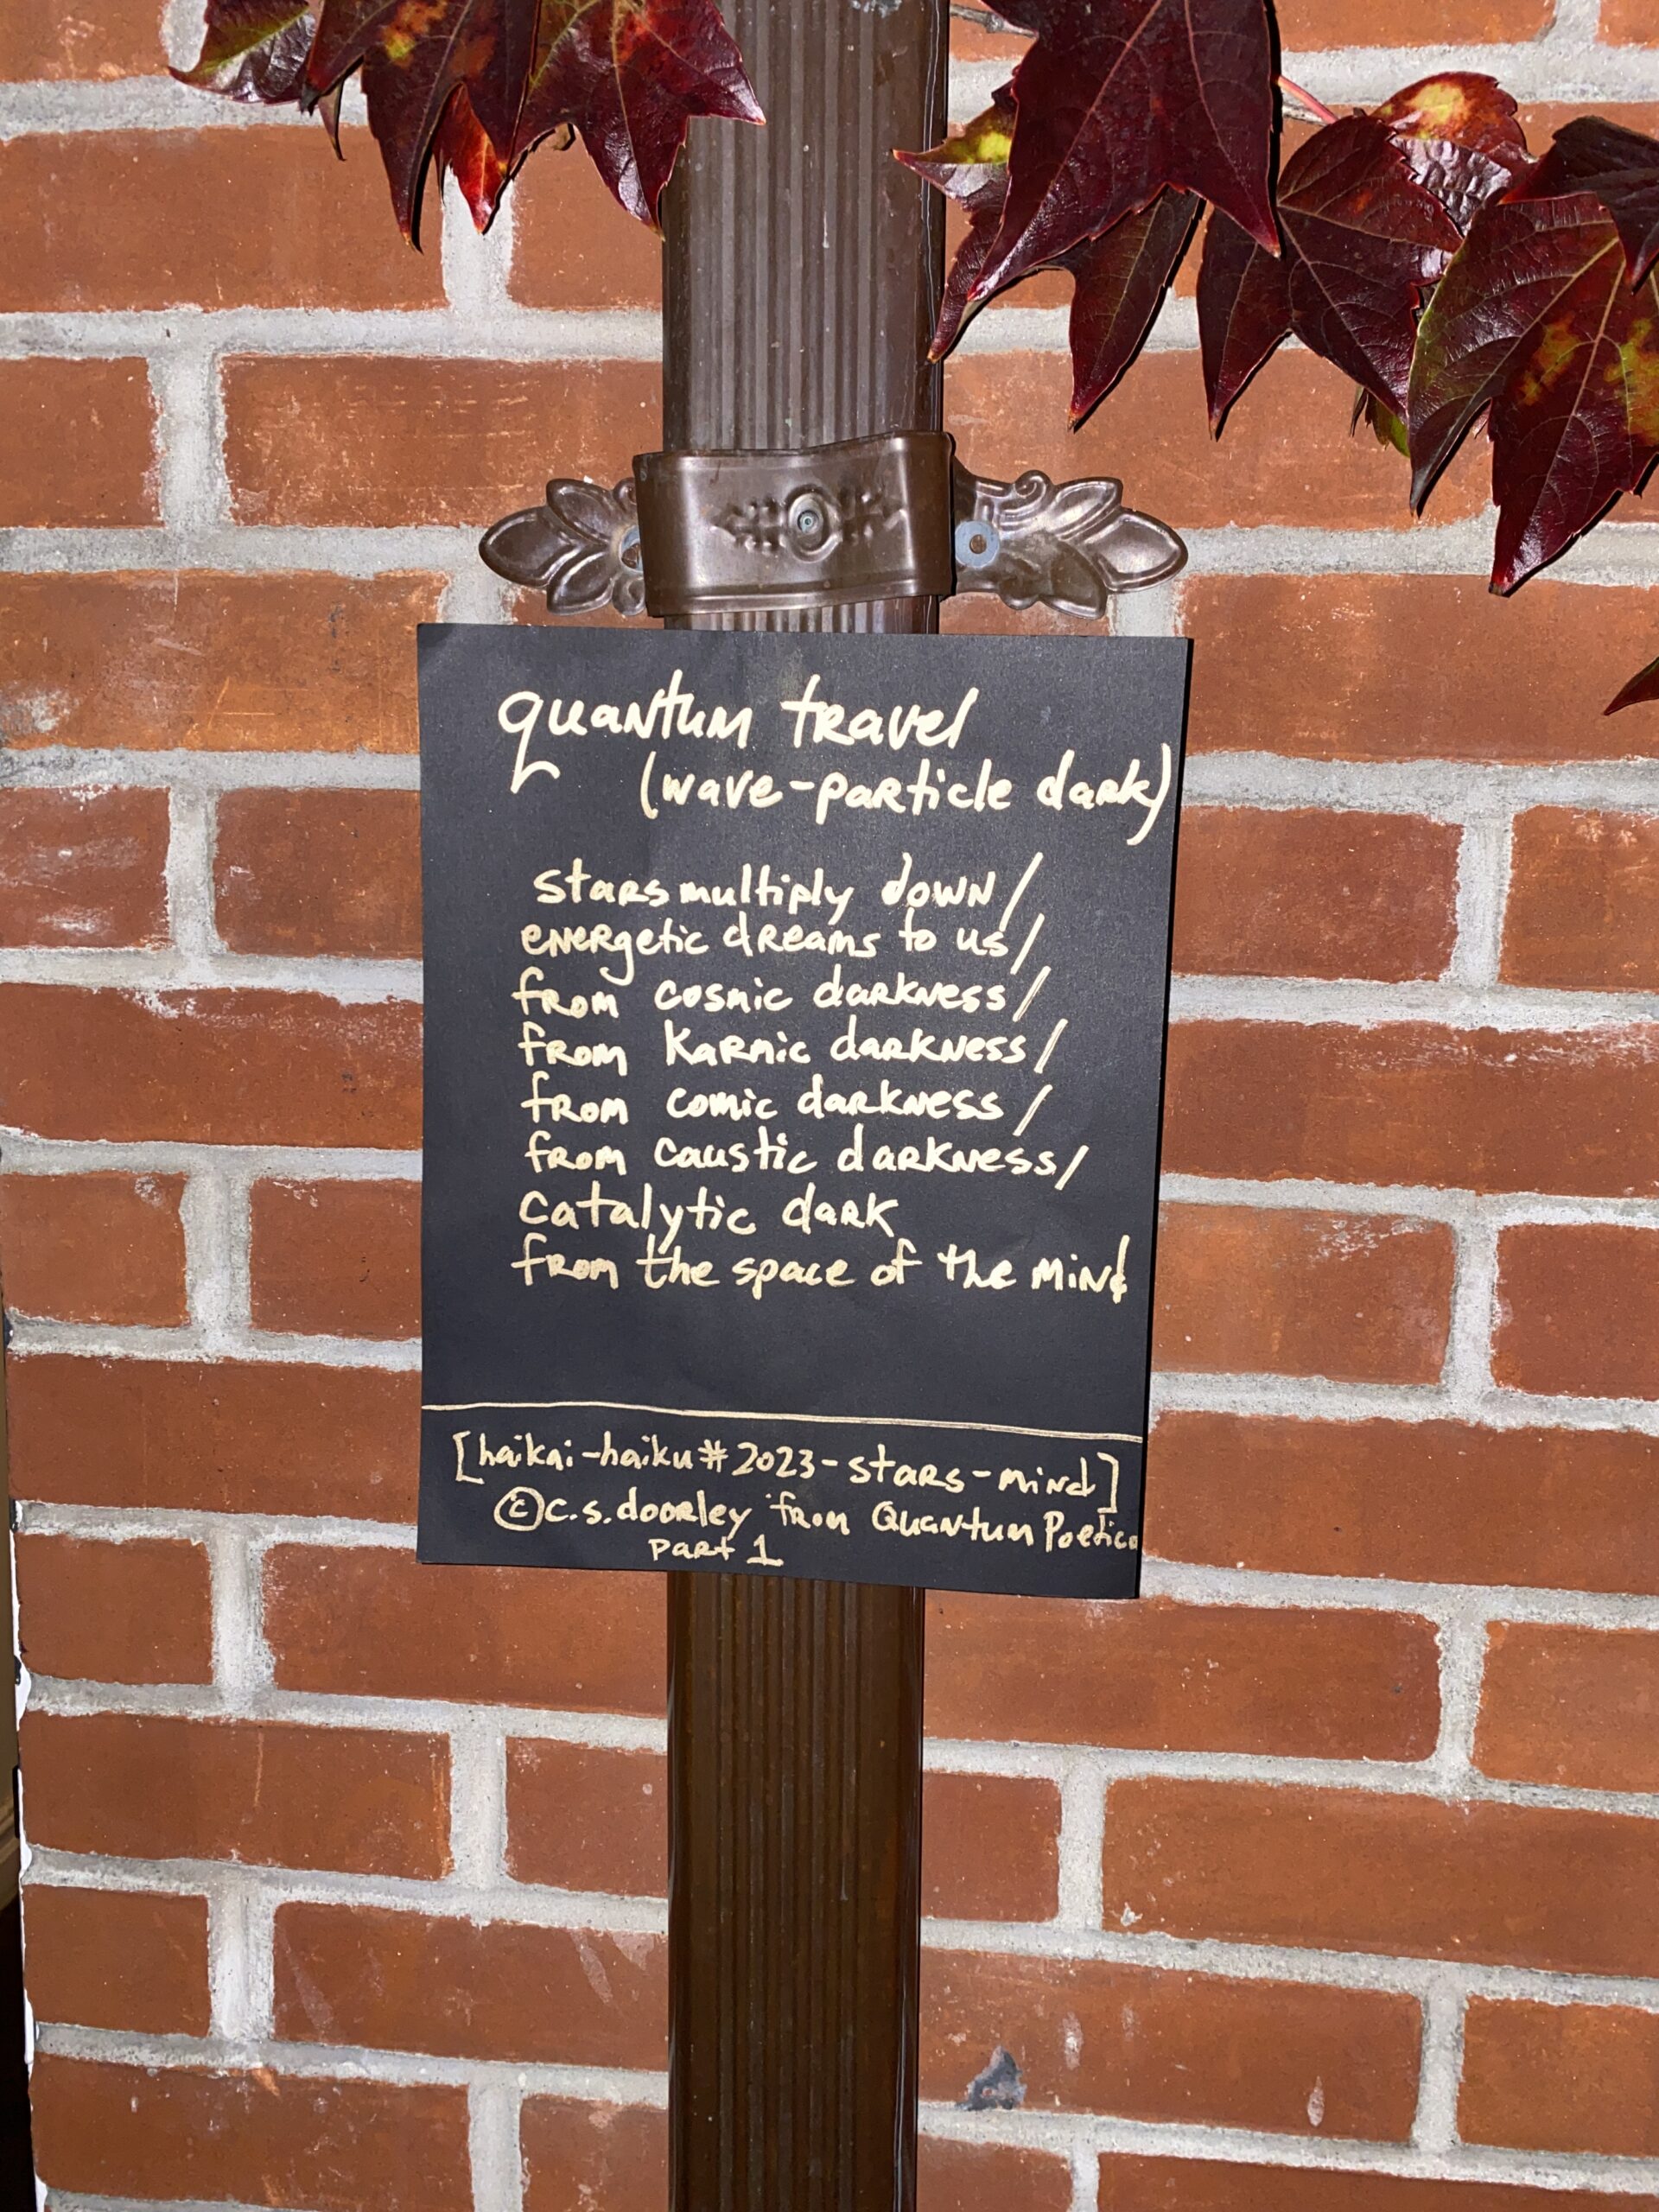 quantum travel
(wave-particle dark)
stars multiply down/
energetic dreams to us/
from cosmic darkness/
from karmic darkness/
from comic darkness/
from caustic darkness/
catalytic dark
from the space of the mind
[haikai-haiku#2023-stars-mind]
©c.s.doorley from Quantum Poetica
part 1